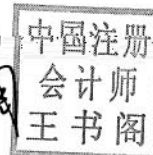 中国注册
会计师
王书阁